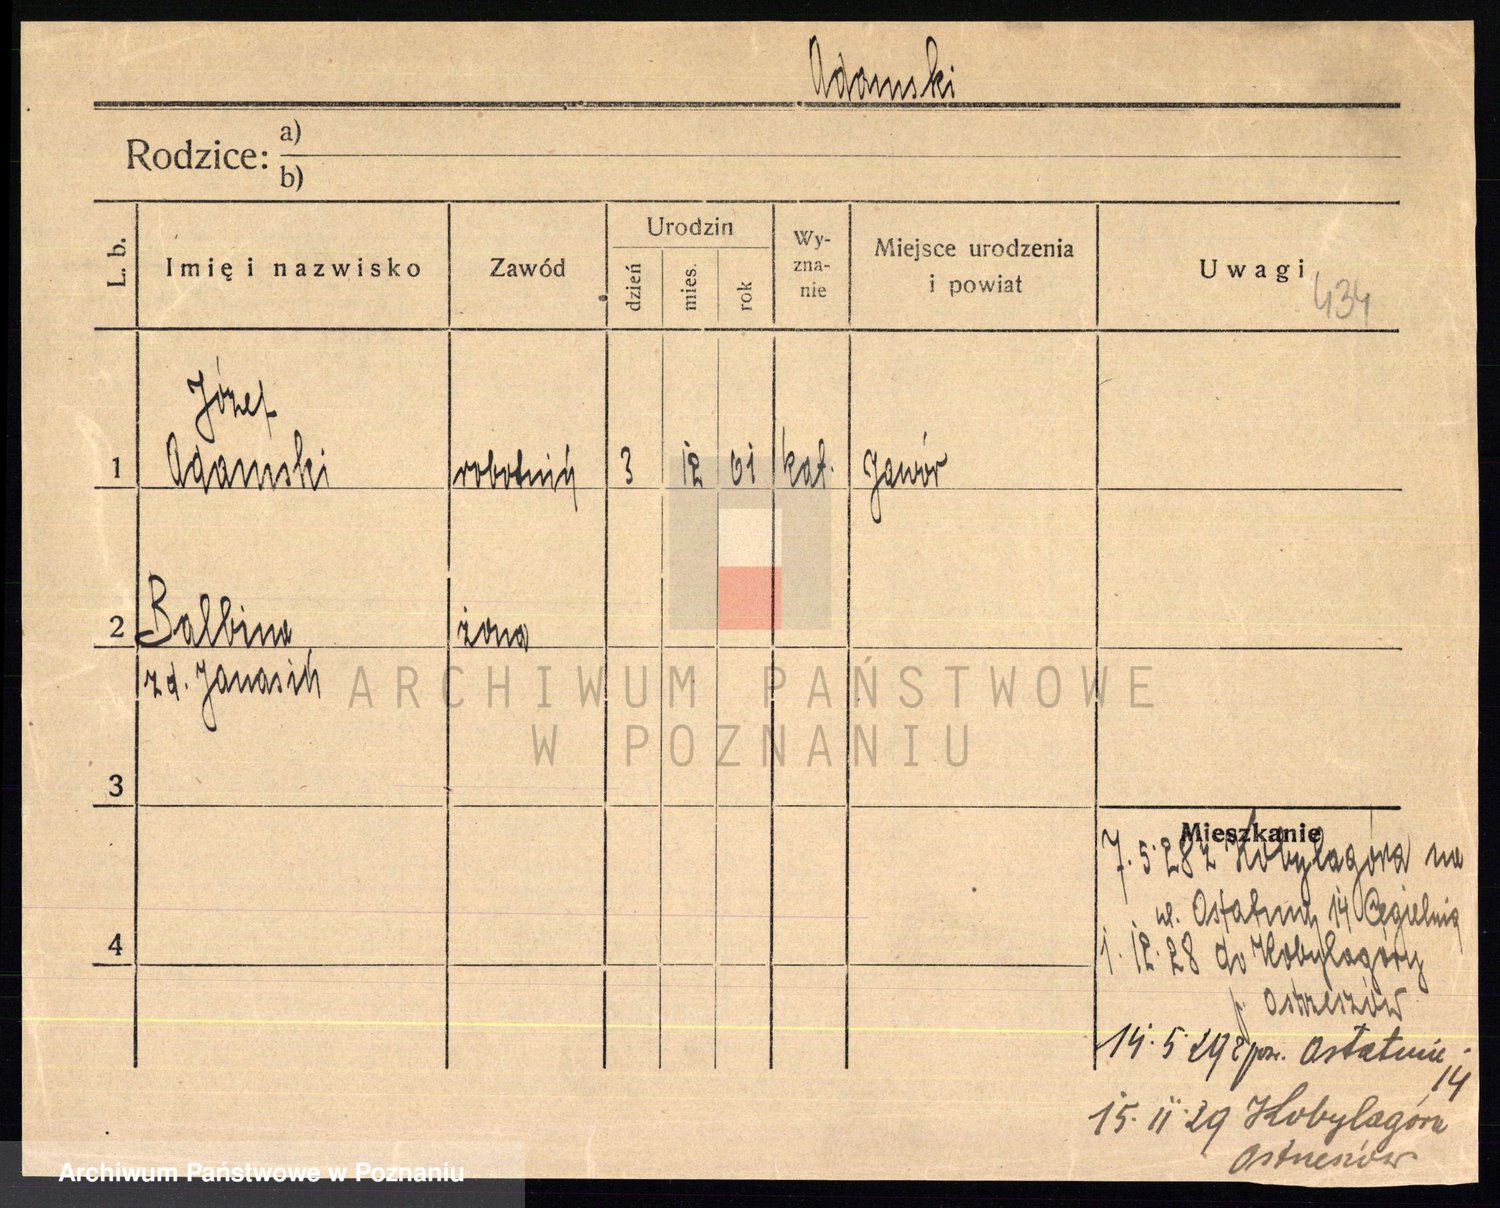 Adamski
Rodzice: a)
b)
L. b.
Imię i nazwisko
Zawód
Urodzin
dzień
mies.
rok
Wy-
zna-
nie
Miejsce urodzenia
i powiat
Uwagi
434
Józef
1 Adamski robotnik 3 12 01 kat. Jawór
2 Balbina żona
zd. Janasik
3
4
Mieszkanie
7.5.28 z Kobylagóra na
ul. Ostatnia 14 Cegielnia
1.12.28 do Kobylagóry
p. Ostrzeszów
14.5.29 Ostatnia
14
15.11.29 Kobylagóra
Ostrzeszów
ARCHIWUM PAŃSTWOWE
W POZNANIU
Archiwum Państwowe w Poznaniu